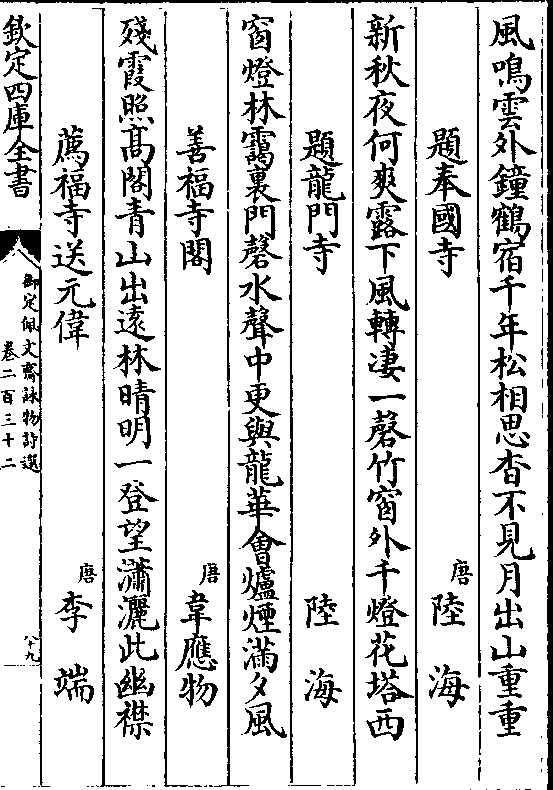 風鳴雲外鐘鶴宿千年松相思杳不見月出山重重
題奉國寺 唐 陸海
新秋夜何爽露下風轉凄一磬竹窗外千燈花塔西
題龍門寺 陸海
窗燈林靄裏門磬水聲中更與龍華會爐煙滿夕風
善福寺閣 唐 韋應物
殘霞照高閣青山出遠林晴明一登望瀟灑此幽襟
薦福寺送元偉 唐 李端
欽定四庫全書
御定佩文齋詠物詩選
卷二百三十二
十九